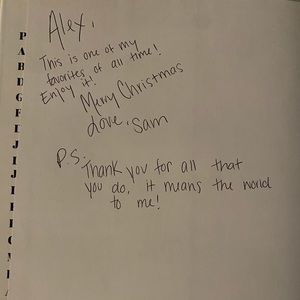 Alex,
This is one of my
favorites of all time!
Enjoy it!
Merry Christmas
Love, Sam
P.S.
Thank you for all that
you do, it means the world
to me!
P
A
B
D
G
F
I
J
I
J
I